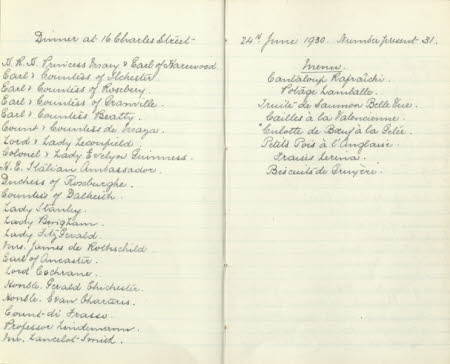 Dinner at 16 Charles Street -
H.R.H. Princess Mary & Earl of Harewood.
Earl & Countess of Ilchester
Earl & Countess of Rosebery
Earl & Countess of Granville
Earl & Countess Beatty.
Count & Countess de
Lord & Lady Leconfield.
Colonel & Lady Evelyn Guinness.
H.E. Italian Ambassador.
Duchess of Roxburghe.
Countess of Dalkeith.
Lady Stanley.
Lady Bingham.
Lady FitzGerald.
Mrs. James de Rothschild
Earl of Ancaster.
Lord Cochrane.
Honble. Gerald Chichester.
Honble. Evan Charteris.
Count di Frasso.
Professor Lindemann.
Mr. Lancelot-Smith.
24th June 1930. Number present 31.
Menu.
Cantaloup Rafraîchi
Potage Lamballe.
Truite de Saumon Belle Vue.
Cailles à la Valencienne.
Culotte de Bœuf à la Gelée.
Petits Pois à l'Anglaise.
Fraises Lerina.
Biscuits de Gruyère.